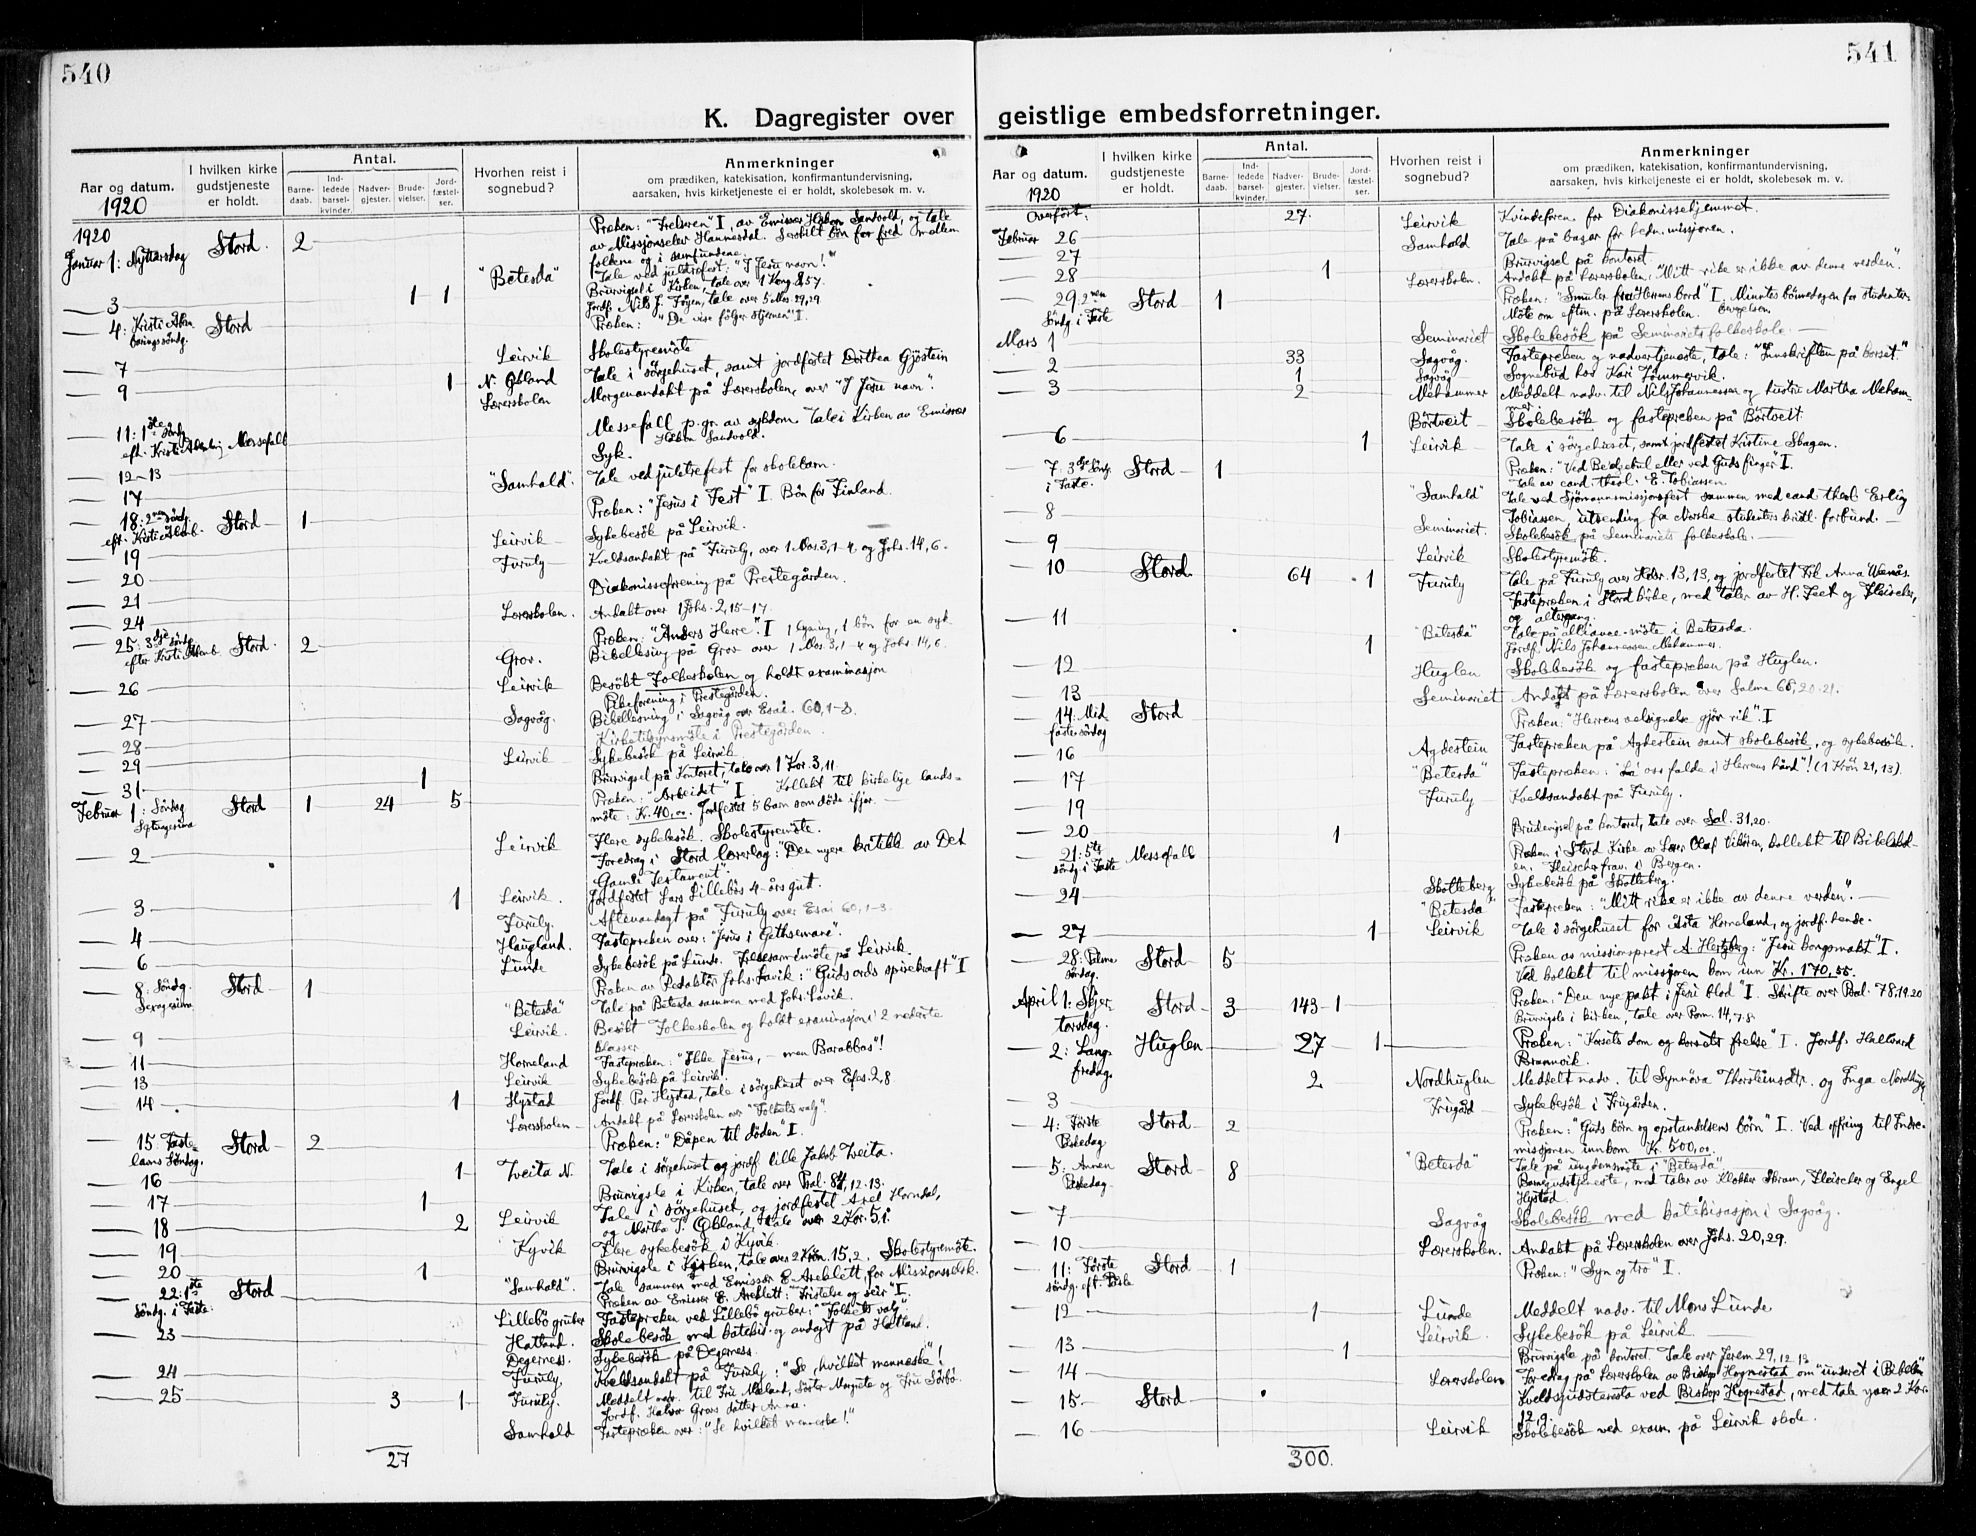 540
K. Dagregister over
Aar og datum.
1920
I hvilken kirke gudstjeneste er holdt.
Antal.
Barne-daab.
Ind-ledede barsel-kvinder.
Nadver-gjester.
Brude-vielser.
Jord-fæstel-ser.
Hvorhen reist i sognebud?
Anmerkninger
om prædiken, katekisation, konfirmantundervisning,
aarsaken, hvis kirketjeneste ei er holdt, skolebesøk m. v.
1920
Januar 1: Nyttårsdag Stord. 2 Præken: "Frelseren" I, av Emissær Håkon Sandvold, og tale
av Missjonselev Hannesdal. Serskilt bön for fred mellem
folkene og i samfundene.
"Betesda" Tale ved juletrefest: "I Jesu navn!"
3 1 1 Bruvigsel i Kirken, tale over 1 Kong. 8,57.
Jordf. Nils J. tale over 5 Mos. 29,29
4: Kristi Åbenbaringssöndg. Stord Præken: "De vise følger stjernen" I.
7 Leirvik Skolestyremöte
9 1 N. Öbland Tale i sörgehuset, samt jordfestet Dorthea Gjöstein
Lærerskolen Morgenandakt på Lærerskolen, over "I Jesu navn".
11: 1ste söndg. eft. Kristi Åbenb. Messefall Messefall p. gr. av sykdom. Tale i Kirken av Emissær
Håkon Sandvold.
12-13 Syk.
17 "Samhald" Tale ved juletrefest for skolebarn.
18: 2nen söndg. eft. Kristi Åbenb. Stord 1 Præken: "Jesus i Fest" I. Bön for Finland.
19 Leirvik Sykebesök på Leirvik.
20 Furuly Kveldsandakt på Furuly, over 1 Mos. 3,1-4 og Johs. 14,6.
21 Diakonisseforening på Prestegården.
24 Lærerskolen. Andakt over 1 Johs. 2,15-17.
25: 3dje söndg. efter Kristi Åbenb. Stord. 2 Præken: "Anders Herre" I 1 lysing, 1 bön for en syk
Grov. Bibellesning på Grov over 1 Mos. 3,1-4 og Johs. 14,6.
26 Leirvik Besökt Folkeskolen og holdt examinasjon
Pikeforening i Prestegården.
27 Sagvåg. Bibellesning i Sagvåg over Esai. 60,1-3.
28 Kirketilsynsmöte i Prestegården.
29 Leirvik Sykebesök på Leirvik
31 1 Bruvigsel på Kontoret, tale over 1 Kor. 3,11.
Februar 1: Söndag Septuagesima Stord 1 24 5 Præken: "Arbeidet" I Kollekt til kirkelige lands-
möte: Kr. 40,00. Jordfestet 5 barn som döde ifjor.
2 Leirvik Flere sykebesök. Skolestyremöte.
Foredrag i Stord lærerlag: "Den nyere kritikk av Det
Gamle Testament".
3 1 Leirvik. Jordfestet Lars Lillebös 4-års gut.
Furuly. Aftenandagt på Furuly over Esai 60,1-3.
4 Haugland. Fastepreken over: "Jesus i Gethsemane".
6 Lunde Sykebesök på Lunde. möte på Leirvik.
8: Söndg. Sexagesima Stord 1 Præken av Redaktör Johs. Lavik: "Guds ords spirekraft" I
"Betesda" Tale på Betesda sammen med Johs. Lavik.
9 Leirvik. Besökt Folkeskolen og holdt examinasjon i 2 nederste
klasser
11 Horneland Fastepreken: "Ikke Jesus, - men Barabbas"!
13 Leirvik Sykebesök på Leirvik.
14 1 Hystad Jordf. Per Hystad, tale i sörgehuset over Efes. 2,8
Lærerskolen Andakt på Lærerskolen over "Folkets valg".
15 Faste-lavns Söndag. Stord 2 Præken: "Dåpen til döden" I.
16 1 Tveita N. Tale i sörgehuset og jordf. lille Jakob Tveita.
17 1 Bruvigsle i Kirken, tale over Psal. 84,12.13.
18 2 Leirvik Tale i sörgehuset, og jordfestet Axel Horndal,
og Martha T. Öbland, tale over 2 Kor. 5,1.
19 Kyvik Flere sykebesök i Kyvik.
20 1 Bruvigsle i Kirken, tale over 2 Krön. 15,2. Skolestyremöte.
"Samhald". Tale sammen med Emissær E. Areklett, for Missionsselsk.
22: 1ste Söndg. i Faste: Stord Præken av Emissær E. Areklett: "Fristelse og seir" I.
Lillebö gruber Fastepreken ved Lillebö gruber: "Folkets valg".
23 Hatland. Skolebesök med katekis. og andagt på Hatland.
Degerness. Sykebesök på Degerness.
24 Furuly, Kveldsandakt på Furuly: "Se, hvilket menneske"!
25 3 1 Furuly. Meddelt nadv. til Fru Meland, Söster Margrete og Fru Sörbö.
Jordf. Halvor Grovs datter Anna.
Samhald Fastepreken over: "Se hvilket menneske!"
27
541
geistlige embedsforretninger.
Aar og datum.
1920
I hvilken kirke gudstjeneste er holdt.
Antal.
Barne-daab.
Ind-ledede barsel-kvinder.
Nadver-gjester.
Brude-vielser.
Jord-fæstel-ser.
Hvorhen reist i sognebud?
Anmerkninger
om prædiken, katekisation, konfirmantundervisning,
aarsaken, hvis kirketjeneste ei er holdt, skolebesøk m. v.
Overfört: 27. Leirvik Kvindeforen. for Diakonissehjemmet.
Februar 26 Samhald Tale på basar for hedn. missjonen.
27 Bruvigsel på kontoret.
28 1 Lærerskolen. Andakt på Lærerskolen: "Mitt rike er ikke av denne verden".
29: 2nen Söndg i Faste Stord 1 Præken: "Smuler fra Herrens bord" I. Minntes bönnedagen for studenter.
Möte om eftm. på Lærerskolen.
Mars 1 Seminariet Skolebesök på Seminariets folkeskole.
2 33 Sagvåg. Fastepreken og nadvertjeneste, tale: "Innskriften på korset."
1 Sagvåg Sognebud hos Kari Tömmervik.
3 2 Mehammer Meddelt nadv. til Nils Johannessen og hustru Martha Meham-
mer.
Börtveit Skolebesök og fastepreken på Börtveit
6 1 Leirvik Tale i sörgehuset, samt jordfestet Kristine Skagen.
7. 3dje Söndg. i Faste. Stord 1 Præken: "Ved Be'elsebul eller ved Guds finger" I.
Tale av cand. theol. E. Tobiassen
8 "Samhald" Tale ved Sjömannsmissjonsfest sammen med cand. theol. Erling
Tobiassen utsending fra Norske studenters kristl. forbund.
9 Seminariet. Skolebesök på Seminariets folkeskole.
Leirvik Skolestyremöte.
10 Stord. 64 1 Furuly Tale på Furuly over Hebr. 13,13, og jordfestet Frk Anna
Fastepreken i Stord kirke, med taler av H. Feet og Fleischer,
og altergang.
11 "Betesda" Tale på alliance-möte i Betesda.
1 Jordf. Nils Johannessen Mehammer.
12 Huglen Skolebesök og fastepreken på Huglen.
13 Seminariet Andagt på Lærerskolen over Salme 66,20-21.
14: Mid-fastesöndag Stord Præken: "Herrens velsignelse gjör rik". I
16 Agdestein Fastepreken på Agdestein samt skolebesök, og sykebesök.
17 "Betesda" Fastepreken: "La oss falde i Herrens hånd"! (1 Krön 21,13).
19 Furuly Kveldsandakt på Furuly.
20 1 Brudevigsel på kontoret, tale over Sal. 31,20.
21: 5te söndg i Faste Messefall Præken i Stord Kirke av Lærer Olaf Vikören, kollekt til Bibelsk-
en. Fleischer frav. i Bergen.
24 Skotteberg Sykebesök på Skotteberg.
"Betesda" Fastepreken: "Mitt rike er ikke av denne verden".
27 1 Leirvik Tale i sörgehuset for Asta Horneland, og jordf. hende.
28: Palme söndag. Stord 5 Præken av missionsprest A. Hertzberg: "Jesu kongsmakt" I.
Ved kollekt til missjonen kom inn Kr. 170,55.
April 1: Skjærtorsdag. Stord 3 143 1 Præken: "Den nye pakt i Jesu blod" I. Skrifte over Psal. 78:19.20
Bruvigsle i kirken, tale over Rom. 14,7-8.
2: Langfredag. Huglen 27 1 Præken: "Korsets dom og korsets frelse" I. Jordf. Hallvard
Brunnvik.
2 Nordhuglen Meddelt nadv. til Synnöva Thorsteinsdtr. og Inga Nordhugl.
3 Frugård Sykebesök i Frugården.
4: Förste Påskedag Stord 2 Præken: "Guds börn og opstandelsens börn" I. Ved offring til Indre-
missjonen innkom Kr. 500,00.
5: Annen Påskedag Stord 8 "Betesda" Tale på ungdomsmöte i "Betesda".
Barnegudstjeneste, med taler av Klokker Skram, Fleischer og Engel
Hystad.
7 Sagvåg Skolebesök med katekisasjon i Sagvåg.
10 Lærerskolen. Andakt på Lærerskolen over Johs. 20,29.
11: Förste söndg. eft. Påske Stord 1 Præken: "Syn og tro" I.
12 1 Lunde Meddelt nadv. til Mons Lunde
Leirvik. Sykebesök på Leirvik
13 1 Bruvigsle på kontoret. Tale over Jerem 29,12 13
14 Lærerskolen Foredrag på Lærerskolen av Biskop Hognestad om "underet i Bibelen"
15 Stord Kveldsgudsteneste ved Biskop Hognestad, med tale yver 2 Kor.
12,9.
16 Leirvik Skolebesök ved exam. på Leirvik skole.
300.